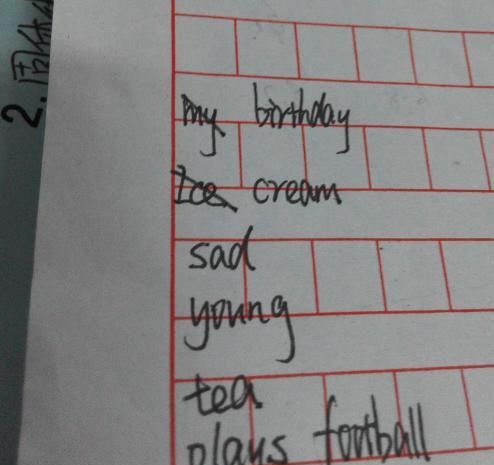 2.
my birthday
Ice cream
sad
young
tea
plays football